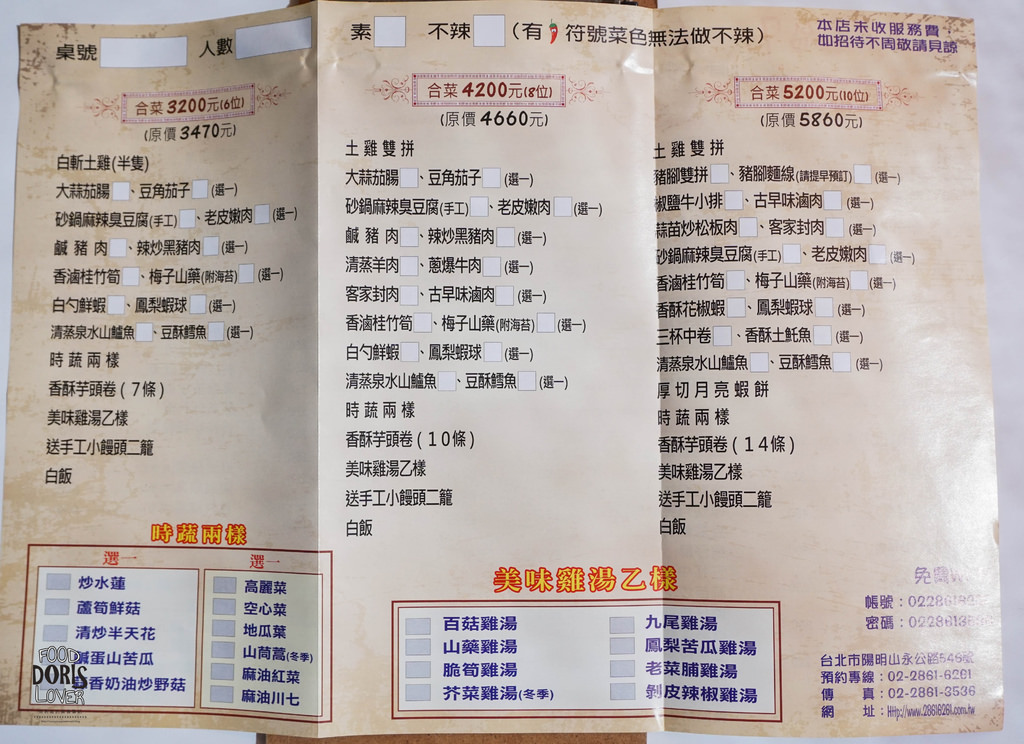 桌號 人數 素 不辣 (有 符號菜色無法做不辣)
本店未收服務費，
如招待不周敬請見諒
合菜3200元(6位)
(原價3470元)
白斬土雞(半隻)
大蒜茄腸、豆角茄子(選一)
砂鍋麻辣臭豆腐(手工)、老皮嫩肉(選一)
鹹豬肉、辣炒黑豬肉(選一)
香滷桂竹筍、梅子山藥(附海苔)(選一)
白勺鮮蝦、鳳梨蝦球(選一)
清蒸泉水山鱸魚、豆酥鱈魚(選一)
時蔬兩樣
香酥芋頭卷(7條)
美味雞湯乙樣
送手工小饅頭二籠
白飯
合菜4200元(8位)
(原價4660元)
土雞雙拼
大蒜茄腸、豆角茄子(選一)
砂鍋麻辣臭豆腐(手工)、老皮嫩肉(選一)
鹹豬肉、辣炒黑豬肉(選一)
清蒸羊肉、蔥爆牛肉(選一)
客家封肉、古早味滷肉(選一)
香滷桂竹筍、梅子山藥(附海苔)(選一)
白勺鮮蝦、鳳梨蝦球(選一)
清蒸泉水山鱸魚、豆酥鱈魚(選一)
時蔬兩樣
香酥芋頭卷(10條)
美味雞湯乙樣
送手工小饅頭二籠
白飯
合菜5200元(10位)
(原價5860元)
土雞雙拼
豬腳雙拼、豬腳麵線(請提早預訂)(選一)
椒鹽牛小排、古早味滷肉(選一)
蒜苗炒松板肉、客家封肉(選一)
砂鍋麻辣臭豆腐(手工)、老皮嫩肉(選一)
香滷桂竹筍、梅子山藥(附海苔)(選一)
香酥花椒蝦、鳳梨蝦球(選一)
三杯中卷、香酥土魠魚(選一)
清蒸泉水山鱸魚、豆酥鱈魚(選一)
厚切月亮蝦餅
時蔬兩樣
香酥芋頭卷(14條)
美味雞湯乙樣
送手工小饅頭二籠
白飯
時蔬兩樣
選一
炒水蓮
蘆筍鮮菇
清炒半天花
鹹蛋山苦瓜
香奶油炒野菇
選一
高麗菜
空心菜
地瓜葉
山茼蒿(冬季)
麻油紅菜
麻油川七
美味雞湯乙樣
百菇雞湯
山藥雞湯
脆筍雞湯
芥菜雞湯(冬季)
九尾雞湯
鳳梨苦瓜雞湯
老菜脯雞湯
剝皮辣椒雞湯
免費
帳號：022861
密碼：022861
台北市陽明山永公路546號
預約專線：02-2861-6261
傳真：02-2861-3536
網址：Http://www.28616261.com.tw
FOOD
DORIS
LOVER